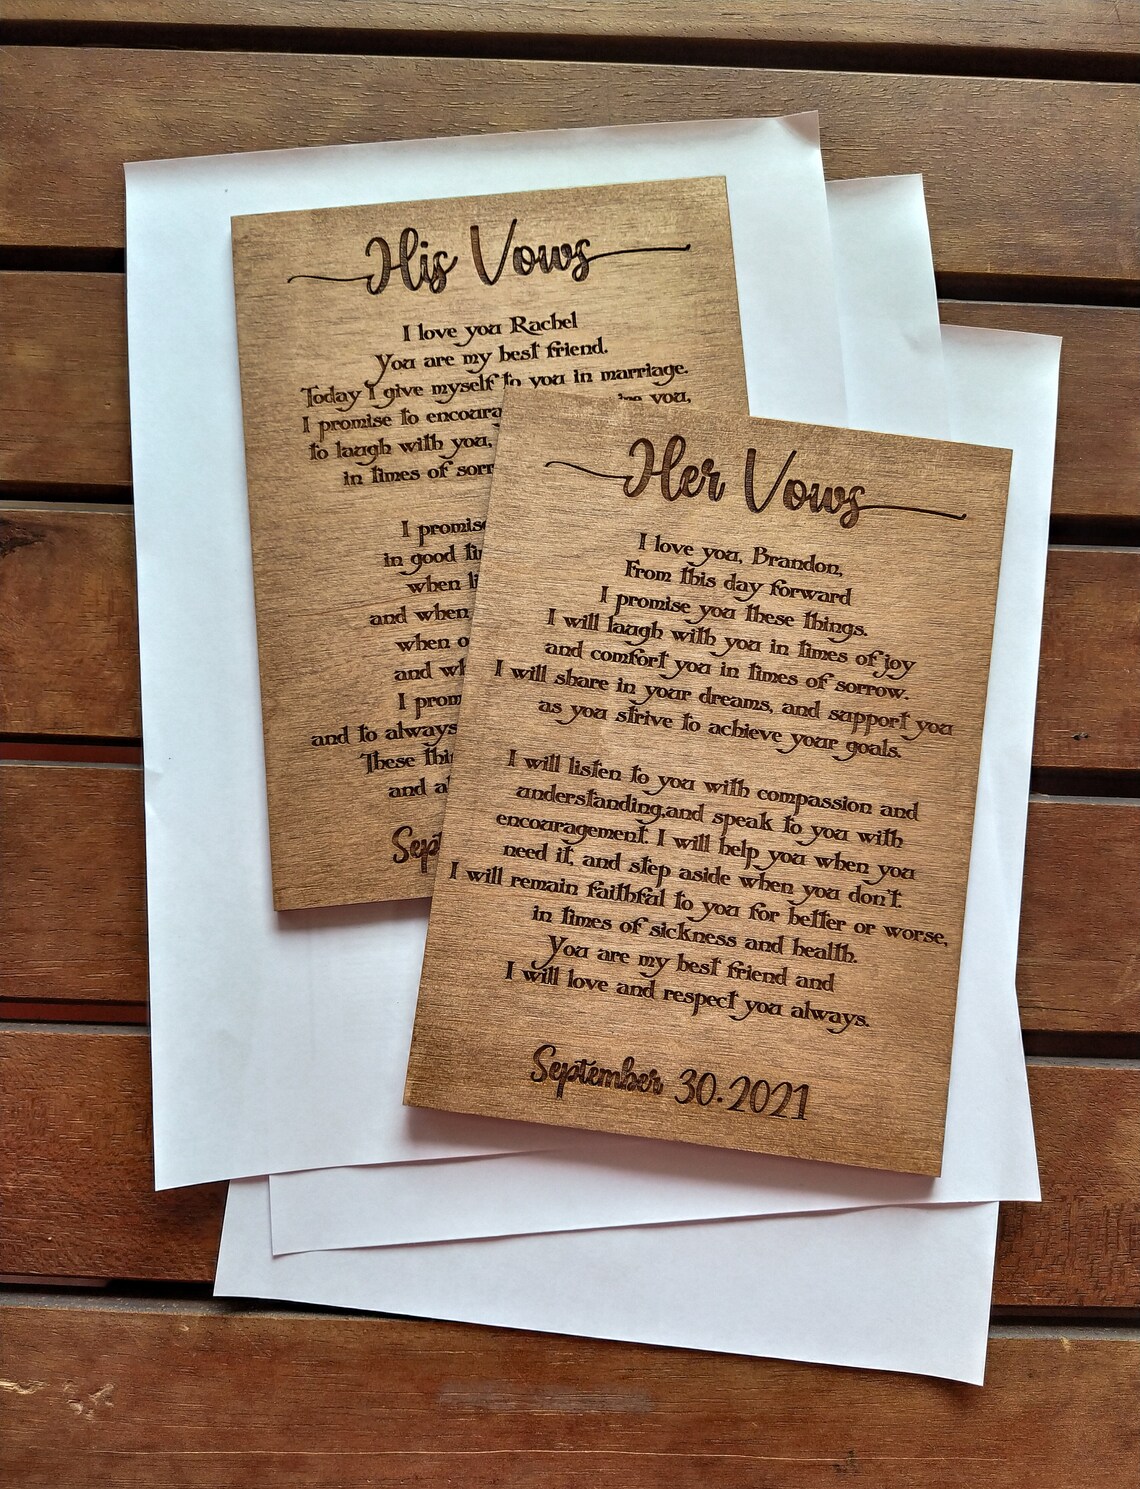 His Vows
I love you Rachel
You are my best friend.
Today I give myself to you in marriage.
I promise to encoura you,
to laugh with you,
in times of sorr
I promise
in good ti
when li
and when
when o
and wh
I prom
and to always
These thi
and al
Sept
Her Vows
I love you, Brandon,
From this day forward
I promise you these things.
I will laugh with you in times of joy
and comfort you in times of sorrow.
I will share in your dreams, and support you
as you strive to achieve your goals.
I will listen to you with compassion and
understanding,and speak to you with
encouragement. I will help you when you
need it, and step aside when you don't.
I will remain faithful to you for better or worse,
in times of sickness and health.
You are my best friend and
I will love and respect you always.
September 30.2021